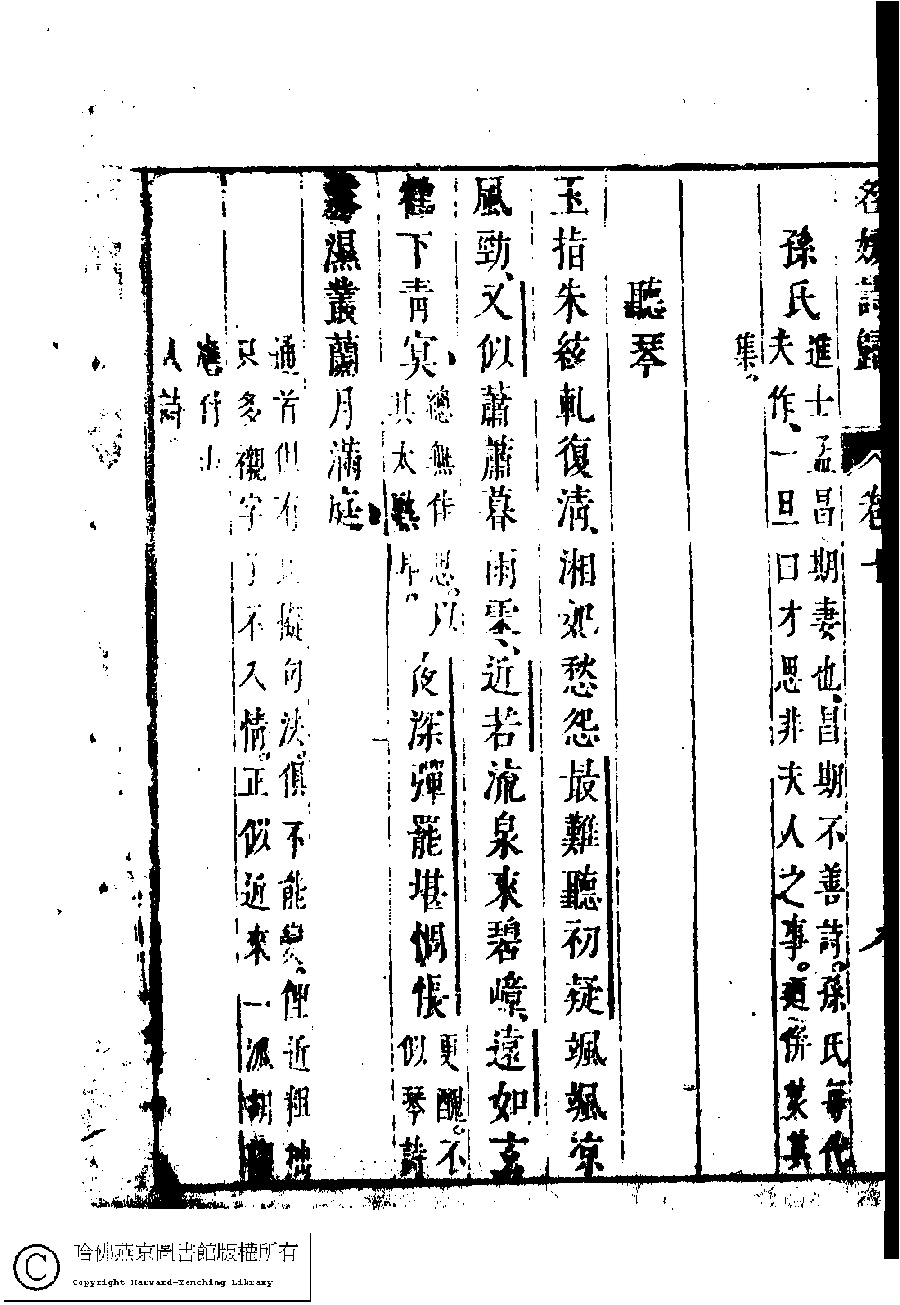 名媛詩歸 卷十
孫氏
進士孟昌期妻也、昌期不善詩。孫氏每代
夫作、一旦曰才思非夫人之事。遂併焚其
集。
聽琴
玉指朱絃軋復清、湘妃愁怨最難聽初疑颯颯涼
風勁、又似蕭蕭暮雨零、近若流泉來碧嶂、遠如玄
鶴下青冥
總無作思。以
其太熟耳。
夜深彈罷堪惆悵
更醜。不
似琴詩
露濕叢蘭月滿庭
通首但有 擬句法。俱不能變、俚近粗拙
只多襯字 不入情。正似近來一派
人詩
哈佛燕京圖書館版權所有
Copyright Harvard-Yenching Library